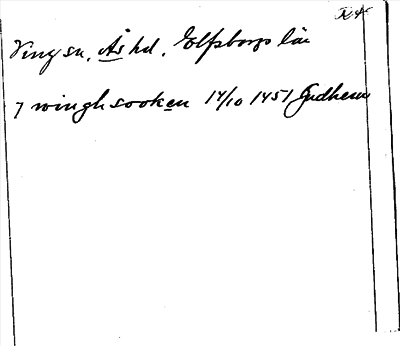 Ving sn, Ås hd, Elfsborgs län
7 wingh sooken 14/10 1451 Gudhem